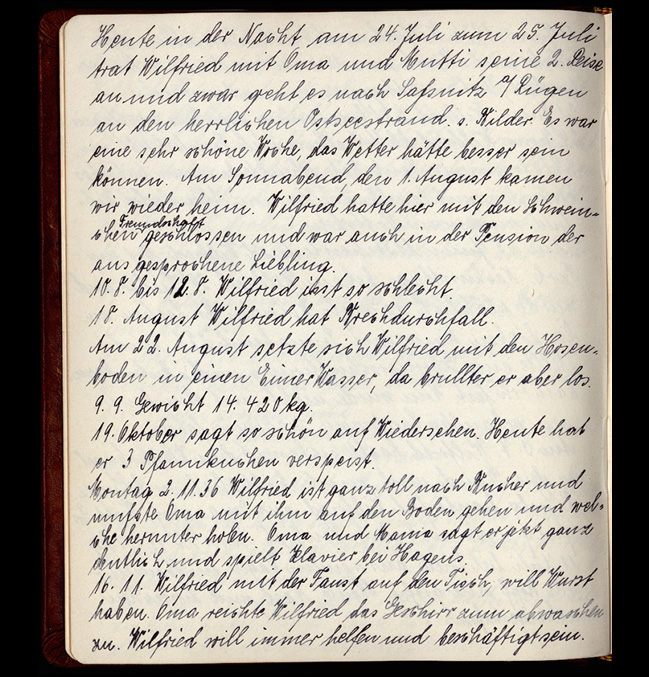 Heute in der Nacht am 24. Juli zum 25. Juli
trat Wilfried mit Oma und Mutti seine 2. Reise
an und zwar geht es nach Saßnitz a/Rügen
an den herrlichen Ostseestrand s. Bilder. Es war
eine sehr schöne Woche, das Wetter hätte besser sein
können. Am Sonnabend, den 1. August kamen
wir wieder heim. Wilfried hatte hier mit den Schwein-
Freundschaft
chen geschlossen und war auch in der Pension der
ausgesprochene Liebling.
10.8. bis 12.8. Wilfried isst so schlecht.
18. August Wilfried hat Brechdurchfall.
Am 22. August setzte sich Wilfried mit den Hosen-
boden in einen Eimer Wasser, da brullter er aber los.
9.9. Gewicht 14.420 kg.
19. Oktober sagt so schön auf Wiedersehen. Heute hat
er 3 Pfannkuchen verspeist.
Montag 2.11.36 Wilfried ist ganz toll nach Kucher und
mußte Oma mit ihm auf den Boden gehen und wel-
che herunter holen. Oma und Mama sagt er jetzt ganz
deutlich und spielt Klavier bei Hagens.
16.11. Wilfried mit der Faust auf den Tisch, will Wurst
haben. Oma reichte Wilfried das Geschirr zum abwaschen
zu. Wilfried will immer helfen und beschäftigt sein.